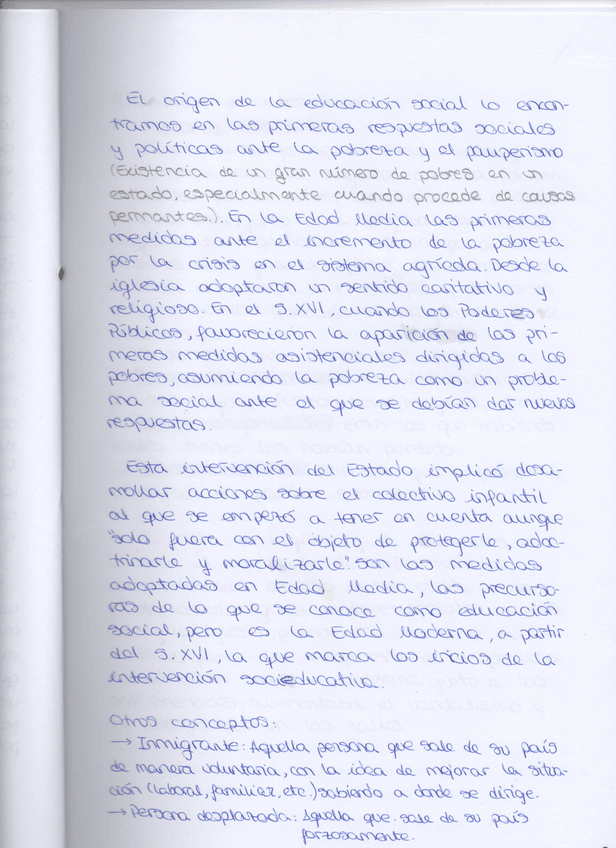 El origen de la educación social lo encon-
tramos en las primeras respuestas sociales
y políticas ante la pobreza y el pauperismo
(Existencia de un gran número de pobres en un
estado, especialmente cuando procede de causas
permantes.). En la Edad Media las primeras
medidas ante el incremento de la pobreza
por la crisis en el sistema agrícola. Desde la
iglesia adoptaron un sentido caritativo y
religioso. En el S. XVI, cuando los Poderes
Públicos, favorecieron la aparición de las pri-
meras medidas asistenciales dirigidas a los
pobres, asumiendo la pobreza como un proble-
ma social ante el que se debían dar nuevas
respuestas.
Esta intervención del Estado implicó desa-
rrollar acciones sobre el colectivo infantil
al que se empezó a tener en cuenta aunque
"solo fuera con el objeto de protegerle, adoc-
trinarle y moralizarle" son las medidas
adoptadas en Edad Media, las precurso-
ras de lo que se conoce como educación
social, pero es la Edad Moderna, a partir
del S. XVI, la que marca los inicios de la
intervención socieducativa.
Otros conceptos:
→ Inmigrante: Aquella persona que sale de su país
de manera voluntaria, con la idea de mejorar la situa-
ción (laboral, familiar, etc.) sabiendo a donde se dirige.
→ Persona desplazada: Aquella que sale de su país
forzosamente.